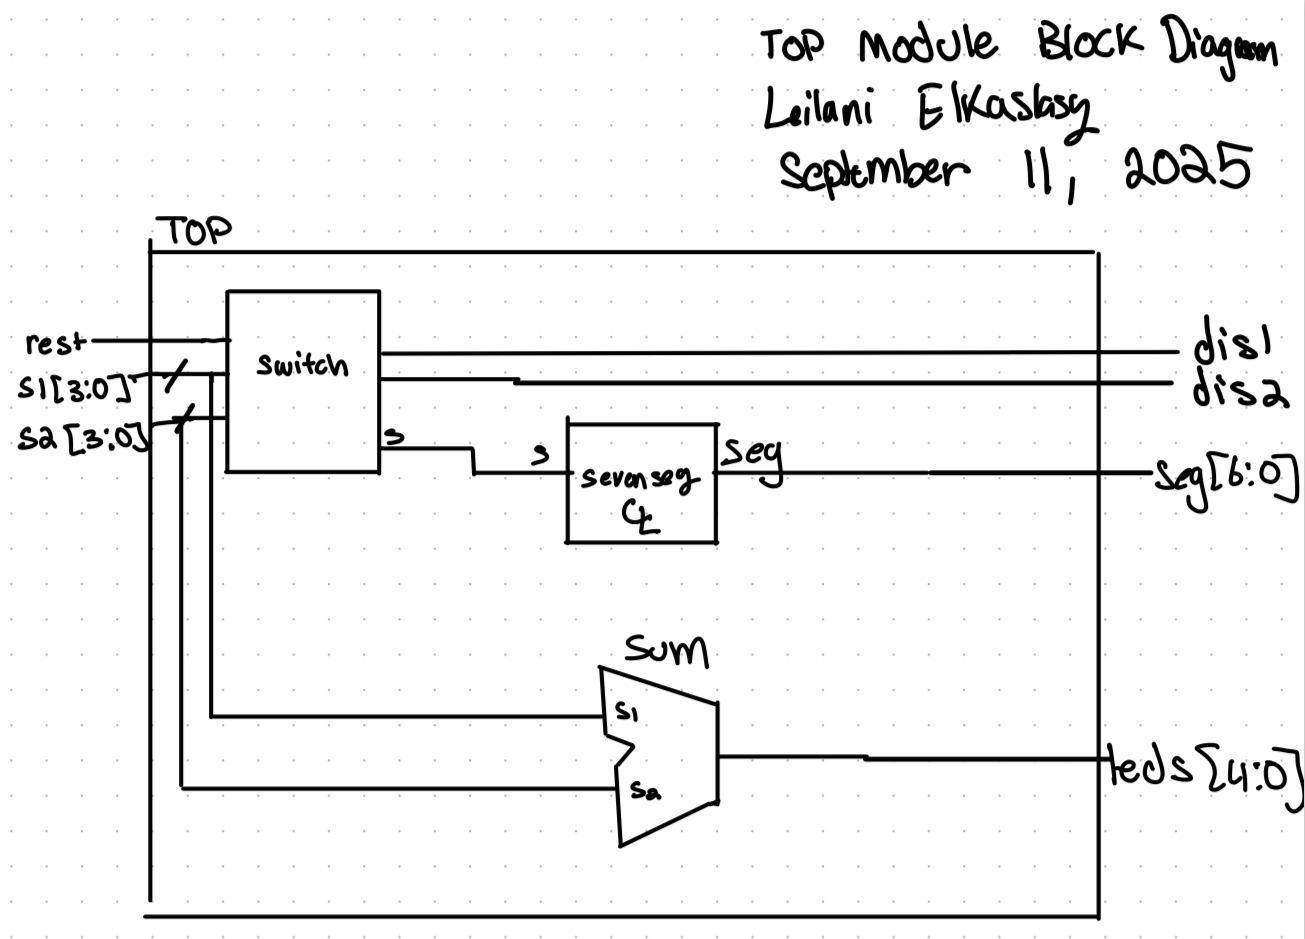 TOP Module Block Diagram
Leilani Elkaslasy
September 11, 2025
TOP
rest
s1[3:0]
s2[3:0]
switch
dis1
dis2
s
s
sevenseg
CL
seg
seg[6:0]
sum
s1
s2
leds[4:0]